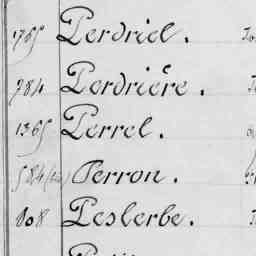 1765 Perdriel.
784 Perdrière.
1365 Perrel.
584 (bis) Perron.
808 Peslerbe.